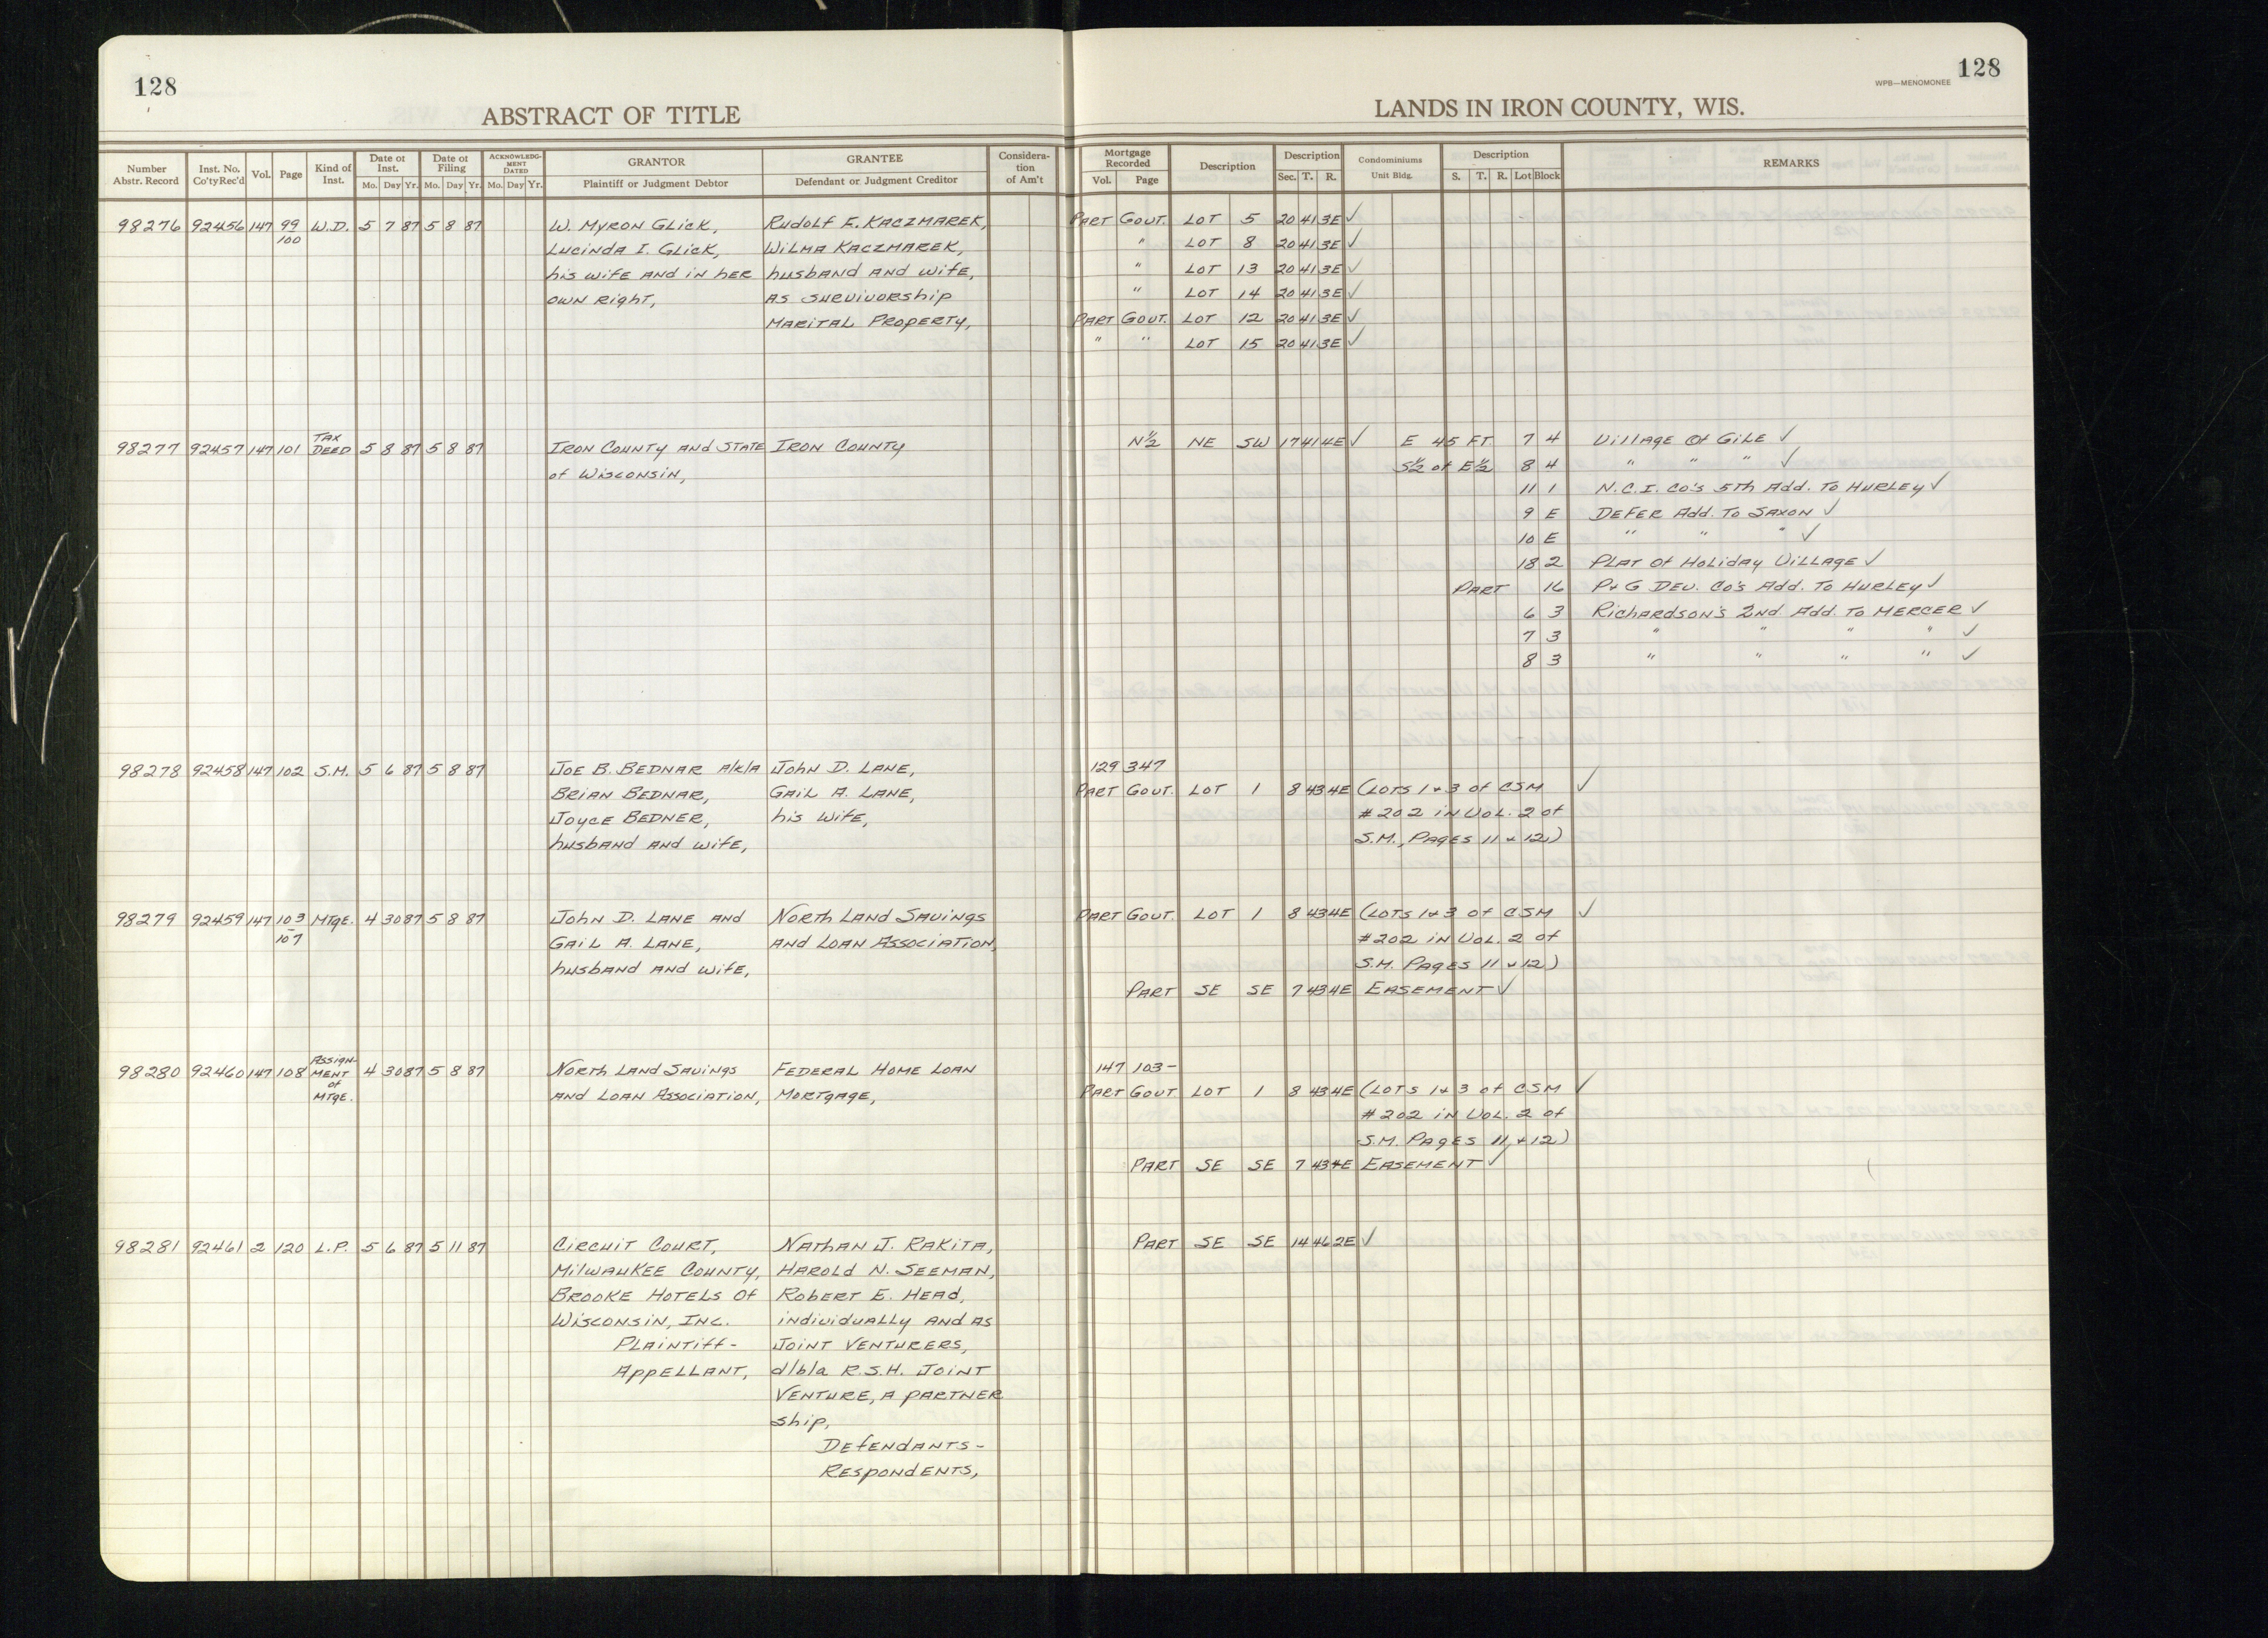 128
ABSTRACT OF TITLE
LANDS IN IRON COUNTY, WIS.
WPB—MENOMONEE
128
Number Abstr. Record | Inst. No. Co'ty Rec'd | Vol. | Page | Kind of Inst. | Date of Inst. Mo. Day Yr. | Date of Filing Mo. Day Yr. | ACKNOWLEDGMENT DATED Mo. Day Yr. | GRANTOR Plaintiff or Judgment Debtor | GRANTEE Defendant or Judgment Creditor | Consideration of Am't | Mortgage Recorded Vol. Page | Description | Description Sec. T. R. | Condominiums Unit Bldg. | Description S. T. R. Lot Block | REMARKS
98276 92456 147 99 W.D. 5 7 87 5 8 87 W. Myron Glick, Rudolf E. Kaczmarek, Part Govt. Lot 5 20 41 3E ✓
100 Lucinda I. Glick, Wilma Kaczmarek, " Lot 8 20 41 3E ✓
his wife and in her husband and wife, " Lot 13 20 41 3E ✓
own right, as survivorship " Lot 14 20 41 3E ✓
marital property, Part Govt. Lot 12 20 41 3E ✓
" " Lot 15 20 41 3E ✓
98277 92457 147 101 Tax Deed 5 8 87 5 8 87 Iron County and State Iron County N½ NE SW 17 41 4E ✓ E 45 Ft. 7 4 Village of Gile ✓
of Wisconsin, S½ of E½ 8 4 " " " ✓
11 1 N.C.I. Co's 5th Add. To Hurley ✓
9 E Defer Add. To Saxon ✓
10 E " " " ✓
18 2 Plat of Holiday Village ✓
Part 16 P+G Dev. Co's Add. To Hurley ✓
6 3 Richardson's 2nd. Add. To Mercer ✓
7 3 " " " " ✓
8 3 " " " " ✓
98278 92458 147 102 S.M. 5 6 87 5 8 87 Joe B. Bednar a/k/a John D. Lane, 129 347
Brian Bednar, Gail A. Lane, Part Govt. Lot 1 8 43 4E (Lots 1+3 of CSM ✓
Joyce Bedner, his wife, #202 in Vol. 2 of
husband and wife, S.M., Pages 11 + 12)
98279 92459 147 103 Mtge. 4 30 87 5 8 87 John D. Lane and North Land Savings Part Govt. Lot 1 8 43 4E (Lots 1+3 of CSM ✓
-107 Gail A. Lane, and Loan Association, #202 in Vol. 2 of
husband and wife, S.M. Pages 11 + 12)
Part SE SE 7 43 4E Easement ✓
98280 92460 147 108 Assignment of Mtge. 4 30 87 5 8 87 North Land Savings Federal Home Loan 147 103-
and Loan Association, Mortgage, Part Govt Lot 1 8 43 4E (Lots 1+3 of CSM ✓
#202 in Vol. 2 of
S.M. Pages 11, + 12)
Part SE SE 7 43 4E Easement ✓
98281 92461 2 120 L.P. 5 6 87 5 11 87 Circuit Court, Nathan J. Rakita, Part SE SE 14 46 2E ✓
Milwaukee County, Harold N. Seeman,
Brooke Hotels of Robert E. Head,
Wisconsin, Inc. individually and as
Plaintiff- Joint Venturers,
Appellant, d/b/a R.S.H. Joint
Venture, a partner
ship,
Defendants-
Respondents,